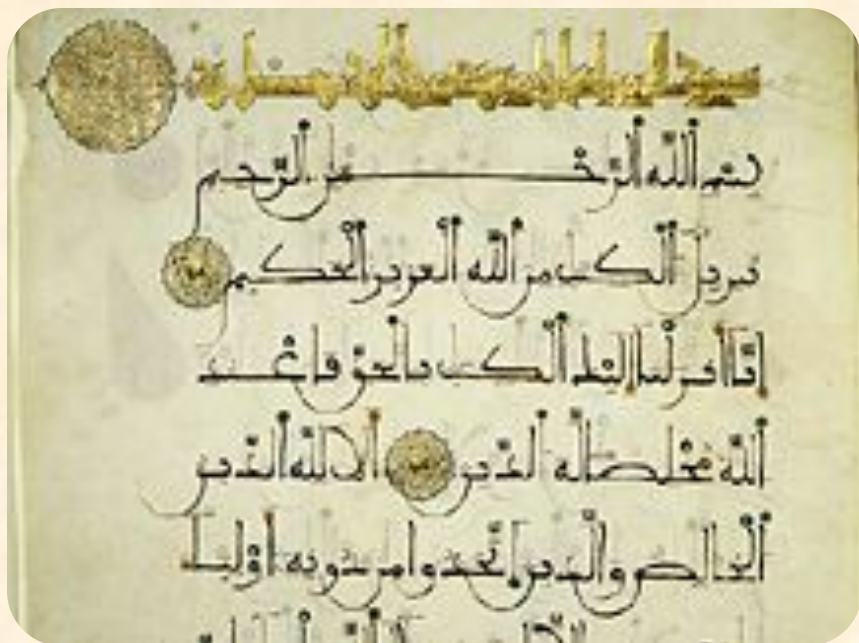 سورة
بسم الله الرحمن الرحيم
تنزيل الكتب من الله العزيز الحكيم
انا انزلنا اليك الكتب بالحق فاعبد
الله مخلصا له الدين الا لله الدين
الخالص والذين اتخذوا من دونه اوليا